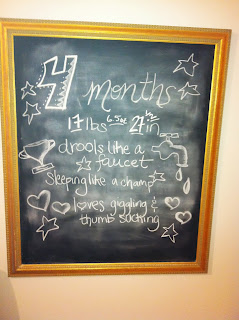 4
months
17 lbs 6.5oz 27 ½ in
drools like a
faucet
Sleeping like a champ
loves giggling &
thumb sucking